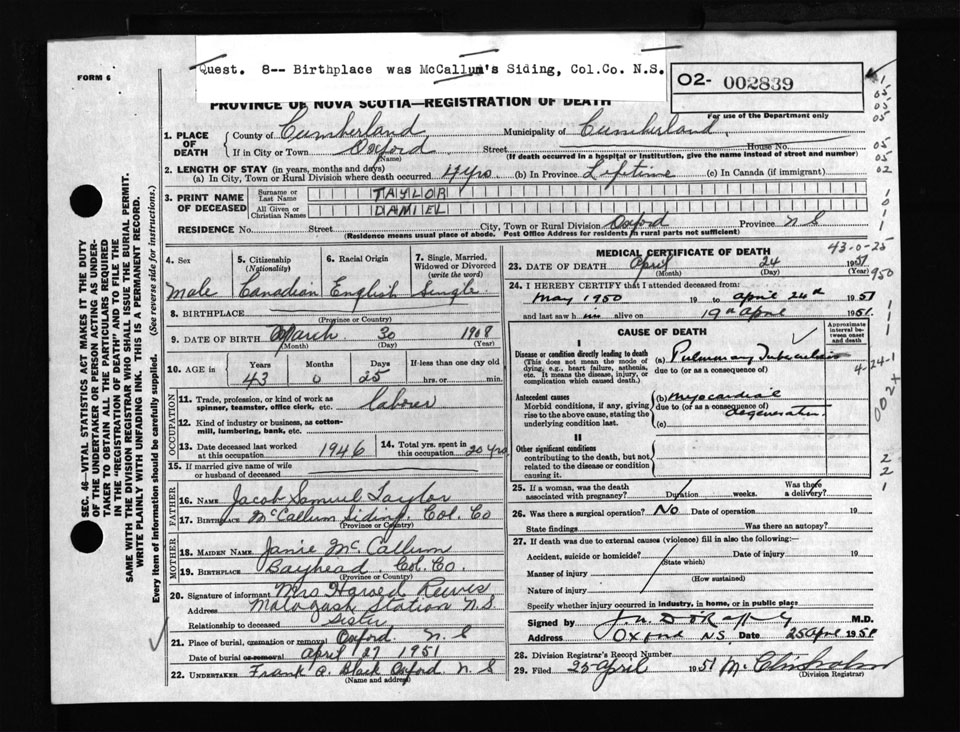 Quest. 8-- Birthplace was McCallum's Siding, Col.Co. N.S.
FORM 6
O2- 002839
For use of the Department only
PROVINCE OF NOVA SCOTIA—REGISTRATION OF DEATH
SEC. 46—VITAL STATISTICS ACT MAKES IT THE DUTY
OF THE UNDERTAKER OR PERSON ACTING AS UNDER-
TAKER TO OBTAIN ALL THE PARTICULARS REQUIRED
IN THE "REGISTRATION OF DEATH" AND TO FILE THE
SAME WITH THE DIVISION REGISTRAR WHO SHALL ISSUE THE BURIAL PERMIT.
WRITE PLAINLY WITH UNFADING INK. THIS IS A PERMANENT RECORD.
Every item of Information should be carefully supplied. (See reverse side for instructions.)
1. PLACE OF DEATH
County of Cumberland Municipality of Cumberland
If in City or Town Oxford Street House No.
(Name) (If death occurred in a hospital or institution, give the name instead of street and number)
2. LENGTH OF STAY (in years, months and days)
(a) In City, Town or Rural Division where death occurred 4 yrs (b) In Province Lifetime (c) In Canada (if immigrant)
3. PRINT NAME OF DECEASED
Surname or Last Name TAYLOR
All Given or Christian Names DANIEL
RESIDENCE No. Street City, Town or Rural Division Oxford Province N S
(Residence means usual place of abode. Post Office Address for residents in rural parts not sufficient)
4. Sex Male
5. Citizenship (Nationality) Canadian
6. Racial Origin English
7. Single, Married, Widowed or Divorced (write the word) Single
8. BIRTHPLACE
(Province or Country)
9. DATE OF BIRTH March 30 1908
(Month) (Day) (Year)
10. AGE in Years 43 Months 0 Days 25 If less than one day old hrs. or min.
OCCUPATION
11. Trade, profession, or kind of work as spinner, teamster, office clerk, etc. laborer
12. Kind of industry or business, as cotton-mill, lumbering, bank, etc.
13. Date deceased last worked at this occupation 1946
14. Total yrs. spent in this occupation 20 yrs
15. If married give name of wife or husband of deceased
FATHER
16. NAME Jacob Samuel Taylor
17. BIRTHPLACE McCallum Siding Col. Co
(Province or Country)
MOTHER
18. MAIDEN NAME Janie McCallum
19. BIRTHPLACE Bayhead Col. Co.
(Province or Country)
20. Signature of informant Mrs Harold Reeves
Address Malagash Station N.S.
Relationship to deceased Sister
21. Place of burial, cremation or removal Oxford N. S
Date of burial or removal April 27 1951
22. UNDERTAKER Frank A. Black Oxford N. S
(Name and address)
MEDICAL CERTIFICATE OF DEATH
43-0-25
23. DATE OF DEATH April 24 1951
(Month) (Day) (Year)
950
24. I HEREBY CERTIFY that I attended deceased from:
May 1950 19 to April 24th 1951
and last saw h im alive on 19th April 1951.
CAUSE OF DEATH
Approximate interval between onset and death
I
Disease or condition directly leading to death
(This does not mean the mode of dying, e.g., heart failure, asthenia, etc. It means the disease, injury, or complication which caused death.)
(a) Pulmonary Tuberculosis
due to (or as a consequence of)
4-24-1
Antecedent causes
Morbid conditions, if any, giving rise to the above cause, stating the underlying condition last.
(b) Myocardial
due to (or as a consequence of) degeneration
(c)
002+
II
Other significant conditions
contributing to the death, but not related to the disease or condition causing it.
25. If a woman, was the death associated with pregnancy? Duration weeks. Was there a delivery?
26. Was there a surgical operation? No Date of operation 19
State findings Was there an autopsy?
27. If death was due to external causes (violence) fill in also the following:
Accident, suicide or homicide? Date of injury 19
(State which)
Manner of injury
(How sustained)
Nature of injury
Specify whether injury occurred in industry, in home, or in public place
Signed by M.D.
Address Oxford NS Date 25 Apl 1951
28. Division Registrar's Record Number
29. Filed 25 April 1951
(Division Registrar)